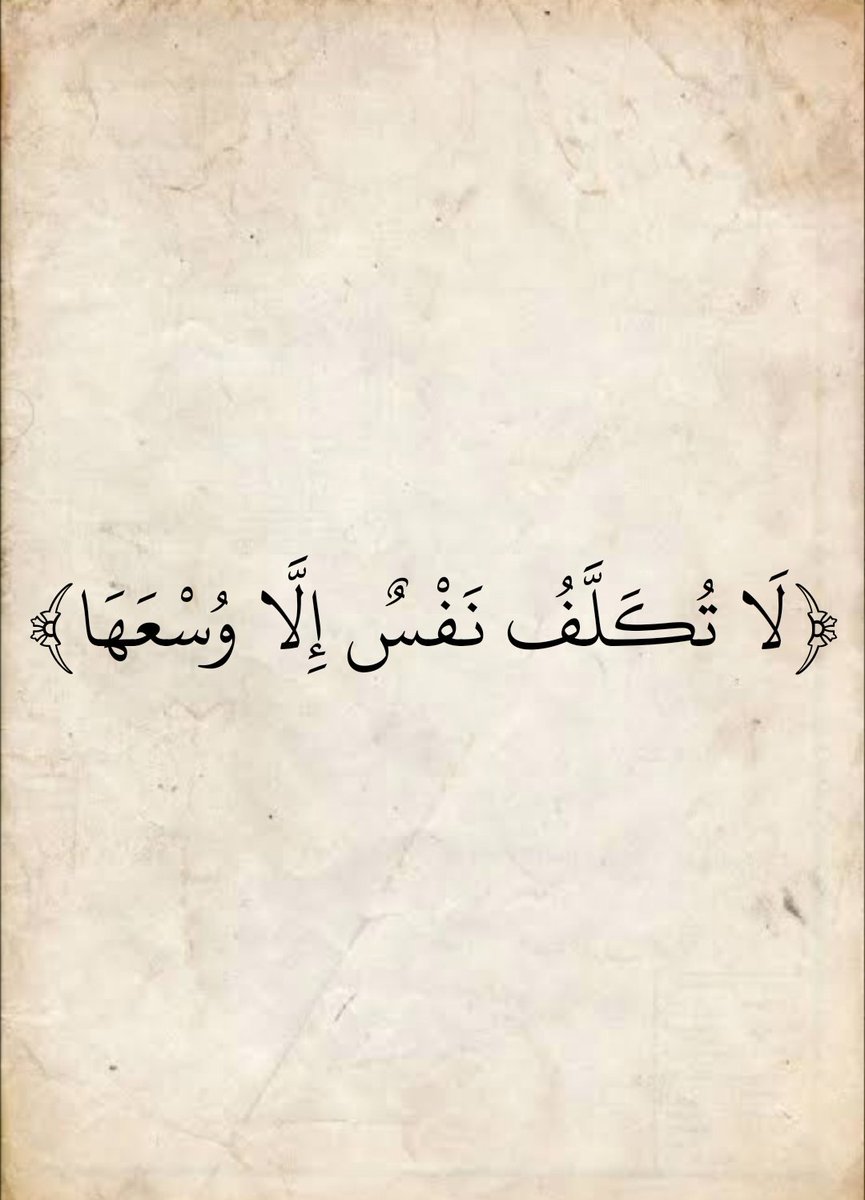 ﴿لَا تُكَلَّفُ نَفْسٌ إِلَّا وُسْعَهَا﴾